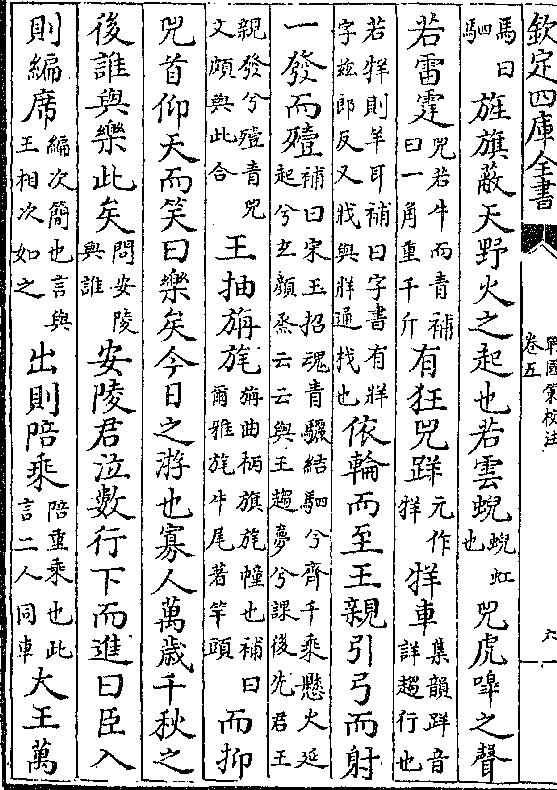 欽定四庫全書
戰國策校注
卷五
六
馬曰
駟
旌旗蔽天野火之起也若雲蜺
蜺虹
也
兕虎嘷之聲
若雷霆
兕若牛而青補
曰一角重千斤
有狂兕䍧
元作
牂
牂車
集韻䍧音
詳趨行也
若牂則羊耳補曰字書有牂
字兹郎反又戕與牂通找也
依輪而至王親引弓而射
一發而殪
補曰宋玉招魂青驪結駟兮齊千乘懸火延
起兮玄顔烝云云與王趨夢兮課後先君王
親發兮殪青兕
文頗與此合
王抽旃旄
旃曲柄旗旄幢也補曰
爾雅旄牛尾著竿頭
而抑
兕首仰天而笑曰樂矣今日之游也寡人萬歲千秋之
後誰與樂此矣
問安陵
與誰
安陵君泣數行下而進曰臣入
則編席
編次簡也言與
王相次如之
出則陪乘
陪重乘也此
言二人同車
大王萬